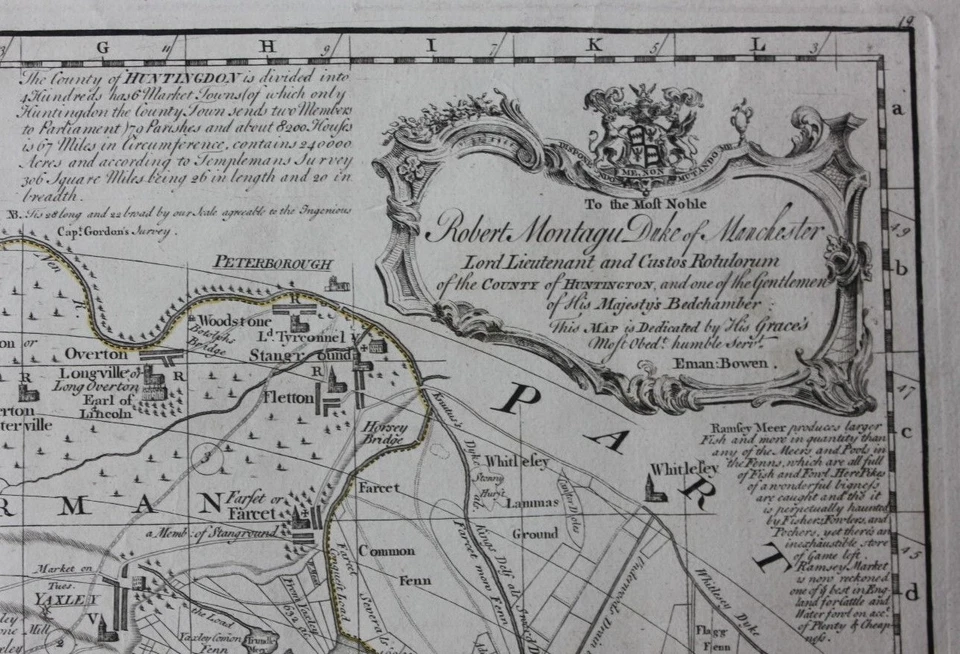 19
G 11 H 9 I 7 K 5 L 3
The County of HUNTINGDON is divided into
4 Hundreds has 6 Market Towns (of which only
Huntingdon the County Town sends two Members
to Parliament) 79 Parishes and about 8200 Houses
is 67 Miles in Circumference, contains 240000
Acres and according to Templemans Survey
306 Square Miles being 26 in length and 20 in
breadth.
NB. Tis 28 long and 22 broad by our Scale agreeable to the Ingenious
Capt. Gordon's Survey.
ME, NON MUTANDO ME
To the Most Noble
Robert Montagu Duke of Manchester
Lord Lieutenant and Custos Rotulorum
of the COUNTY of HUNTINGTON, and one of the Gentlemen
of His Majesty's Bedchamber:
This MAP is Dedicated by His Grace's
Most Obedt. humble Servt.
Eman: Bowen.
a
49
b
47
c
45
d
Nen R.
PETERBOROUGH
R
Woodstone
Botolphs
Bridge
Ld. Tyrconnel
Stangr ound
on or
Overton
Longville or
Long Overton
R
Earl of
Lincoln
R
erton
terville
R
Fletton
Horsey
Bridge
3
Knutus's Dyke
PART
Whitlesey
Whitlesey
Lammas
Ground
Ramsey Meer produces larger
Fish and more in quantity than
any of the Meers and Pools in
the Fenns, which are all full
of Fish and Fowl. Here Pikes
of a wonderful bigness
are caught and tho' it
is perpetually haunted
by Fishers, Fowlers, and
Pochers, yet there's an
inexhaustible store
of Game left.
Ramsey Market
is now reckoned
one of ye best in Eng-
land for Cattle and
Water fowl on acct.
of Plenty & Cheap-
ness.
RMAN
Farset or
Farcet
a Memb: of Stanground
Farcet
Common
Fenn
Kings Delf als
Farcet more Fenn
Underwoods Drain
Whitlesey Dyke
Flagg
Fenn
Market on
Tues.
YAXLEY
V
Mill
2
the Load
Yaxley Comon
Fenn
Trundle
Mere